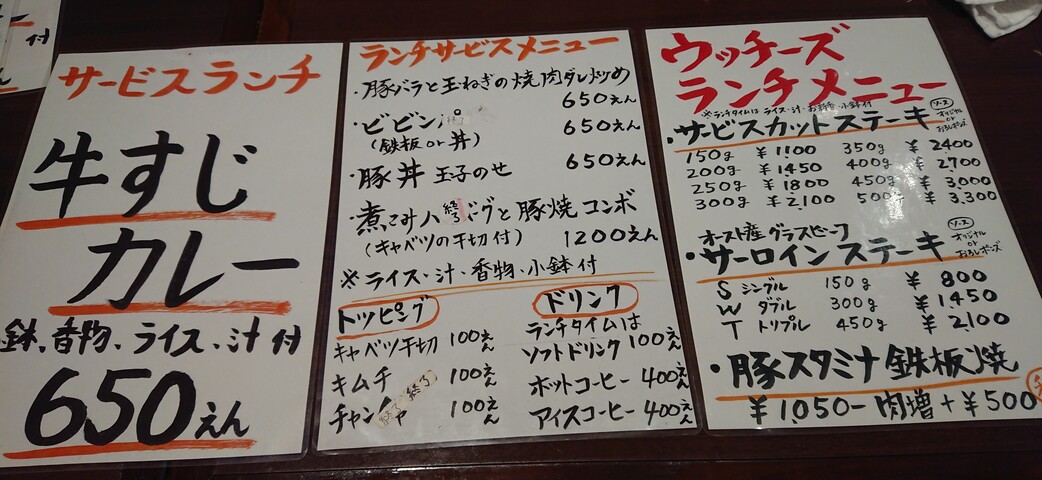 付
えん
サービスランチ
牛すじ
カレー
鉢、香物、ライス、汁付
650えん
ランチサービスメニュー
・豚バラと玉ねぎの焼肉ダレ炒め
650えん
・ビビンバ 650えん
(鉄板or丼)
・豚丼 玉子のせ 650えん
・煮こみハンバーグと豚焼コンボ
終了
(キャベツの千切付) 1200えん
※ライス・汁・香物・小鉢付
トッピング
キャベツ千切 100えん
キムチ 100えん
チャンヂャ 100えん
終了
ドリンク
ランチタイムは
ソフトドリンク 100えん
ホットコーヒー 400えん
アイスコーヒー 400えん
ウッチーズ
ランチメニュー
※ランチタイムは ライス・汁・お新香・小鉢付
・サービスカットステーキ
ソース
オリジナル
or
おろしポンズ
150g ¥1100 350g ¥2400
200g ¥1450 400g ¥2700
250g ¥1800 450g ¥3,000
300g ¥2,100 500g ¥3,300
オースト産グラスビーフ
・サーロインステーキ
ソース
オリジナル
or
おろしポーズ
S シングル 150g ¥800
W ダブル 300g ¥1450
T トリプル 450g ¥2100
・豚スタミナ鉄板焼
¥1050- 肉増+¥500